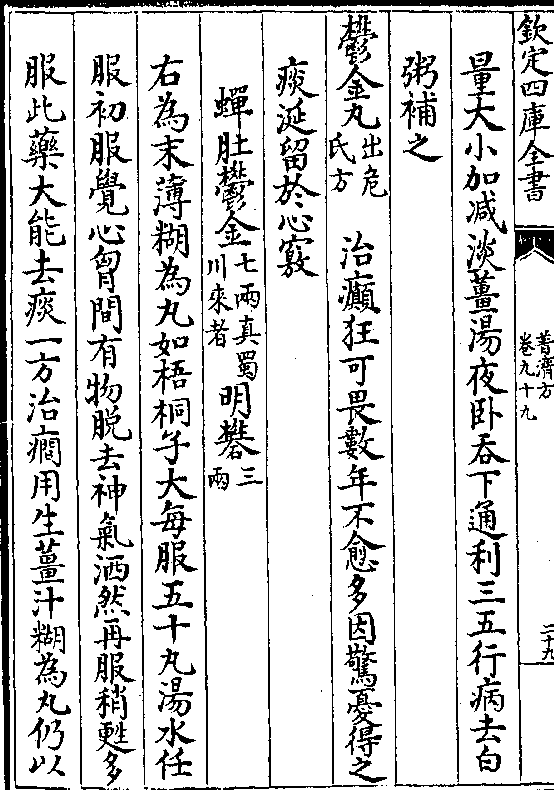 欽定四庫全書
普濟方
卷九十九
二十九
量大小加减淡薑湯夜卧吞下通利三五行病去白
粥補之
鬱金丸出危氏方 治癲狂可畏數年不愈多因驚憂得之
痰涎留於心竅
蟬肚鬱金七兩真蜀川來者 明礬三兩
右為末薄糊為丸如梧桐子大每服五十丸湯水任
服初服覺心胷間有物脱去神氣洒然再服稍甦多
服此藥大能去痰一方治癎用生薑汁糊為丸仍以